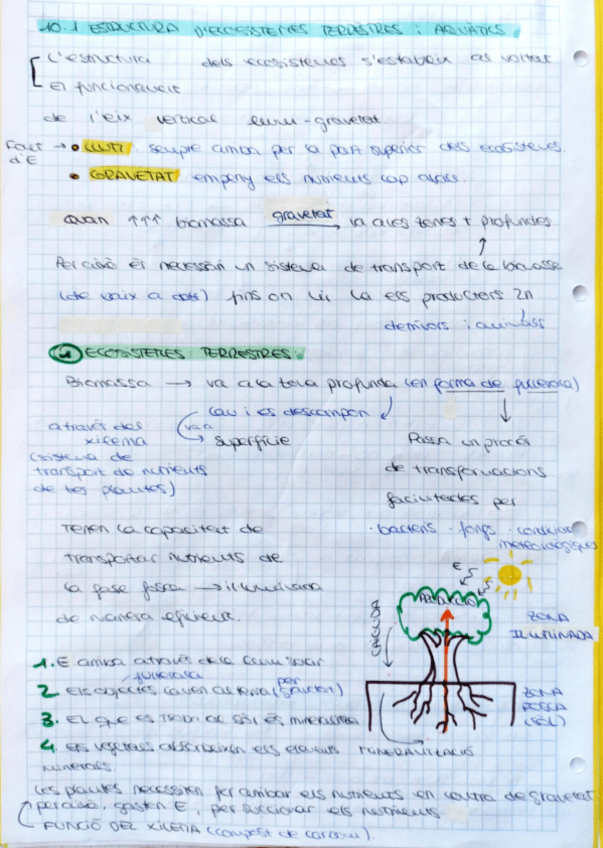 10.1 ESTRUCTURA D'ECOSISTEMES TERRESTRES i AQUÀTICS
L'estructura dels ecosistemes s'estableix al voltant
El funcionament
de l'eix vertical llum-gravetat.
Font d'E → • LLUM: sempre arriba per la part superior dels ecosistemes.
• GRAVETAT empeny els nutrients cap avall.
Quan ↑↑↑ biomassa gravetat → va a les zones + profundes
Per això és necessari un sistema de transport de la biomassa
(de baix a dalt) fins on hi ha els productors 2n
ECOSISTEMES TERRESTRES:
Biomassa → va a la terra profunda (en forma de fullaraca)
cau i es descompon
va a → superfície
a través del xilema
(sistema de
transport de nutrients
de les plantes)
Passa un procés
de transformacions
facilitades per
· bacteris · fongs · condicions
meteorològiques
Tenen la capacitat de
transportar nutrients de
la fase fosca → il·luminada
de manera eficient.
E
PRODUCCIÓ
ZONA
ILUMINADA
ZONA
FOSCA
(SÒL)
1. E arriba a través de la llum solar
fullaraca
2. Els objectes cauen al terra (per gravetat)
3. El que es troba al sòl és mineralitza
4. Els vegetals absorbeixen els elements
minerals.
MINERALITZACIÓ
Les plantes necessiten fer arribar els nutrients en contra de gravetat
per això, gasten E, per succionar els nutrients
FUNCIÓ DEL XILEMA (compost de carboni).